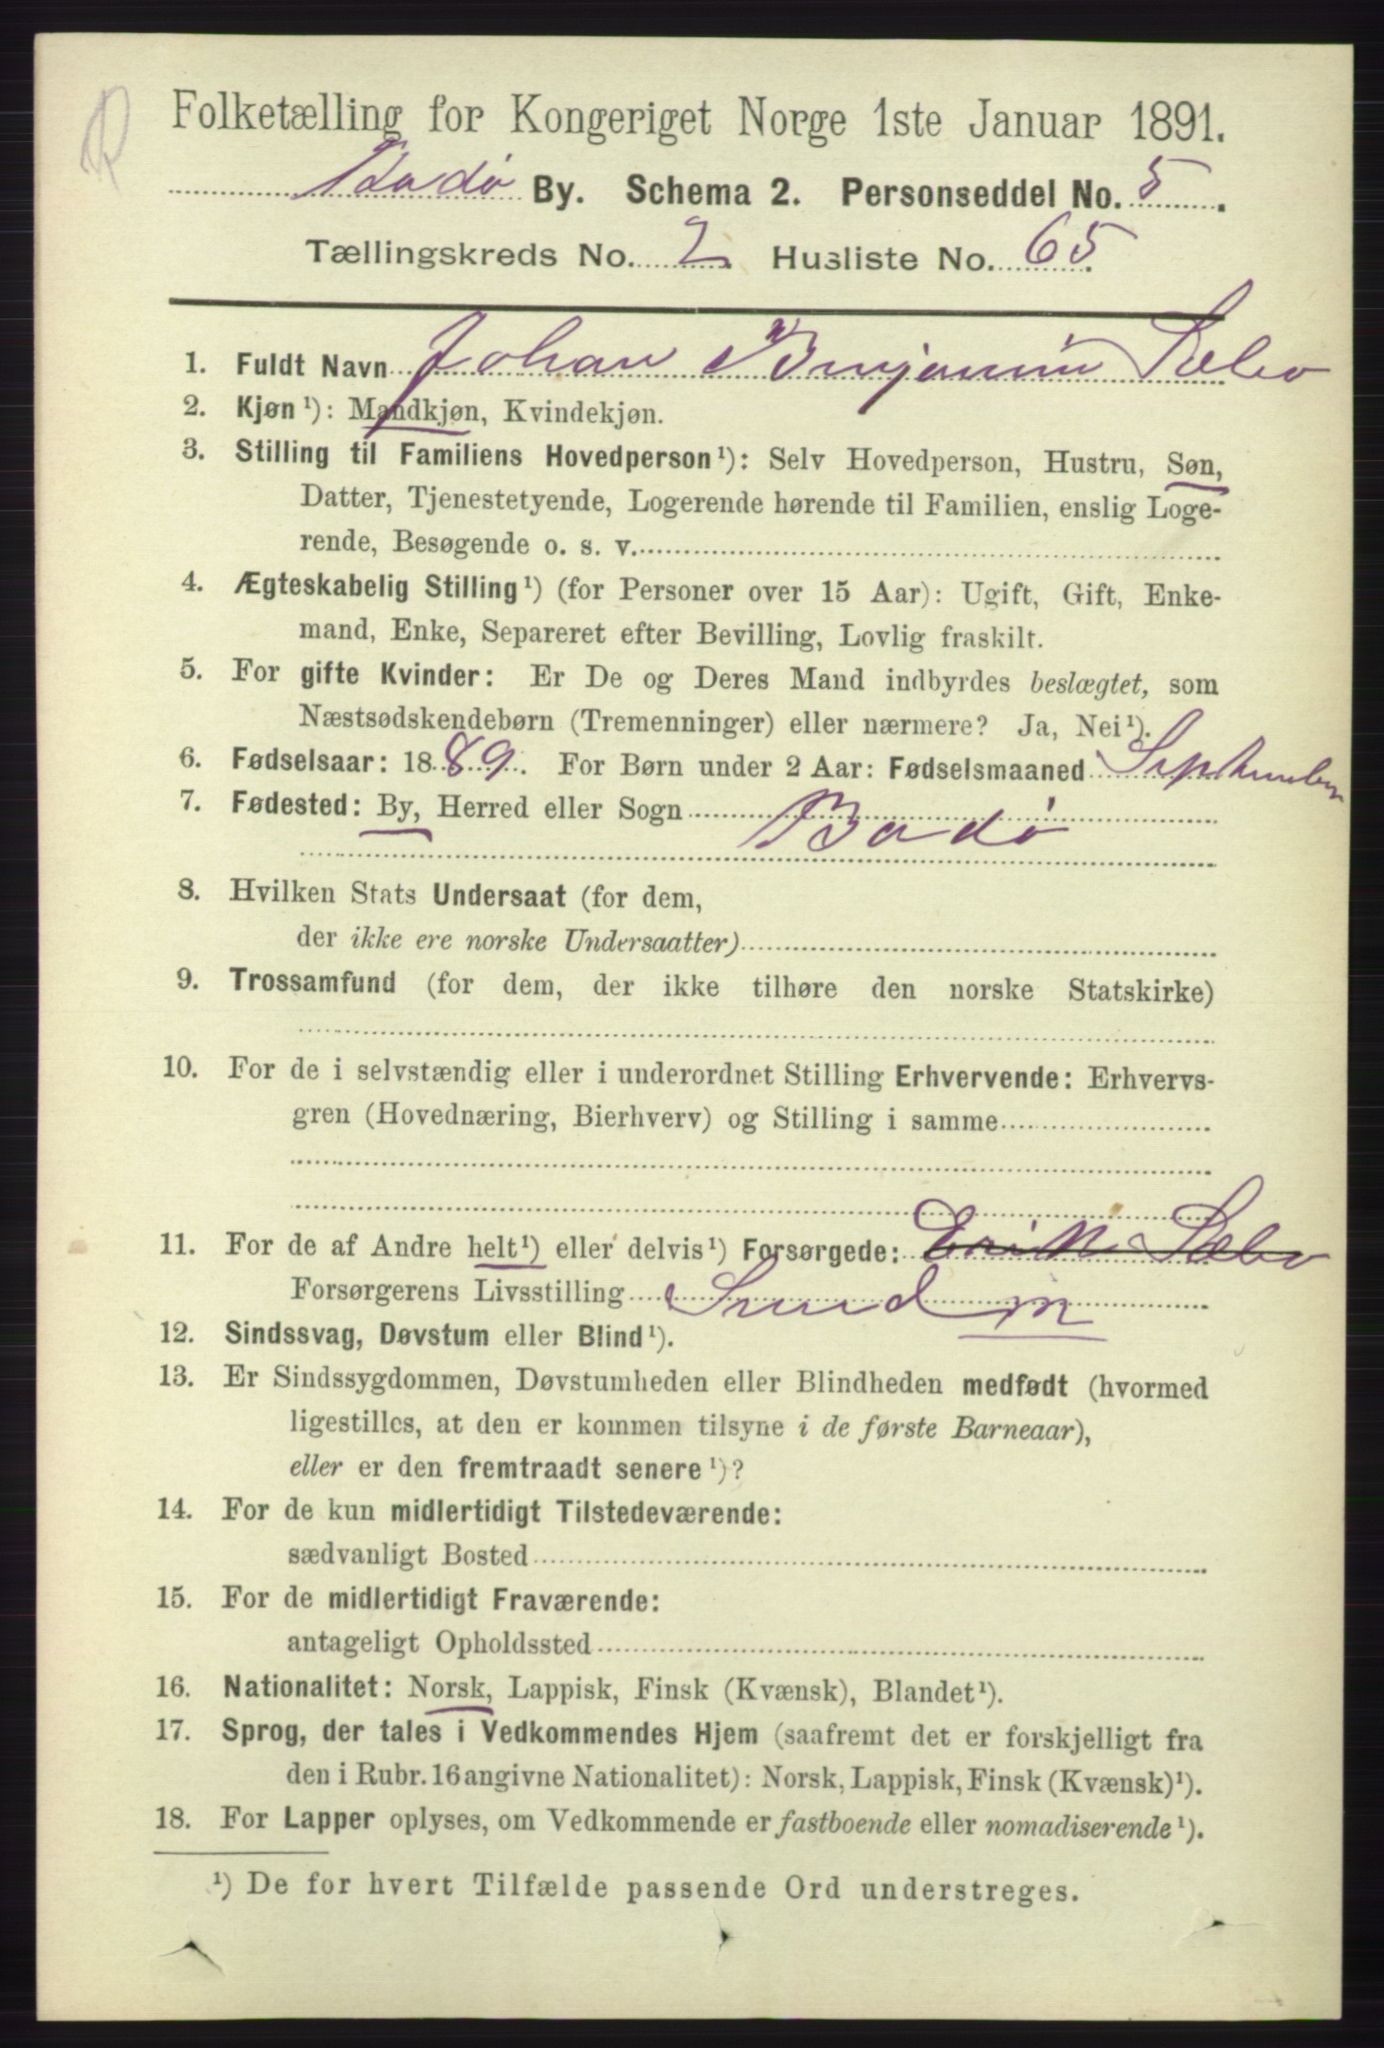 Folketælling for Kongeriget Norge 1ste Januar 1891.
Bodø By. Schema 2. Personseddel No. 5.
Tællingskreds No. 2. Husliste No. 65.
1. Fuldt Navn Johan Benjamin Sæbo
2. Kjøn¹): Mandkjøn, Kvindekjøn.
3. Stilling til Familiens Hovedperson¹): Selv Hovedperson, Hustru, Søn,
Datter, Tjenestetyende, Logerende hørende til Familien, enslig Loge-
rende, Besøgende o. s. v.
4. Ægteskabelig Stilling¹) (for Personer over 15 Aar): Ugift, Gift, Enke-
mand, Enke, Separeret efter Bevilling, Lovlig fraskilt.
5. For gifte Kvinder: Er De og Deres Mand indbyrdes beslægtet, som
Næstsødskendebørn (Tremenninger) eller nærmere? Ja, Nei¹).
6. Fødselsaar: 1889. For Børn under 2 Aar: Fødselsmaaned September
7. Fødested: By, Herred eller Sogn Bodø
8. Hvilken Stats Undersaat (for dem,
der ikke ere norske Undersaatter)
9. Trossamfund (for dem, der ikke tilhøre den norske Statskirke)
10. For de i selvstændig eller i underordnet Stilling Erhvervende: Erhvervs-
gren (Hovednæring, Bierhverv) og Stilling i samme
11. For de af Andre helt¹) eller delvis¹) Forsørgede: Erik Sæbo
Forsørgerens Livsstilling Smed m
12. Sindssvag, Døvstum eller Blind¹).
13. Er Sindssygdommen, Døvstumheden eller Blindheden medfødt (hvormed
ligestilles, at den er kommen tilsyne i de første Barneaar),
eller er den fremtraadt senere¹)?
14. For de kun midlertidigt Tilstedeværende:
sædvanligt Bosted
15. For de midlertidigt Fraværende:
antageligt Opholdssted
16. Nationalitet: Norsk, Lappisk, Finsk (Kvænsk), Blandet¹).
17. Sprog, der tales i Vedkommendes Hjem (saafremt det er forskjelligt fra
den i Rubr. 16 angivne Nationalitet): Norsk, Lappisk, Finsk (Kvænsk)¹).
18. For Lapper oplyses, om Vedkommende er fastboende eller nomadiserende¹).
¹) De for hvert Tilfælde passende Ord understreges.